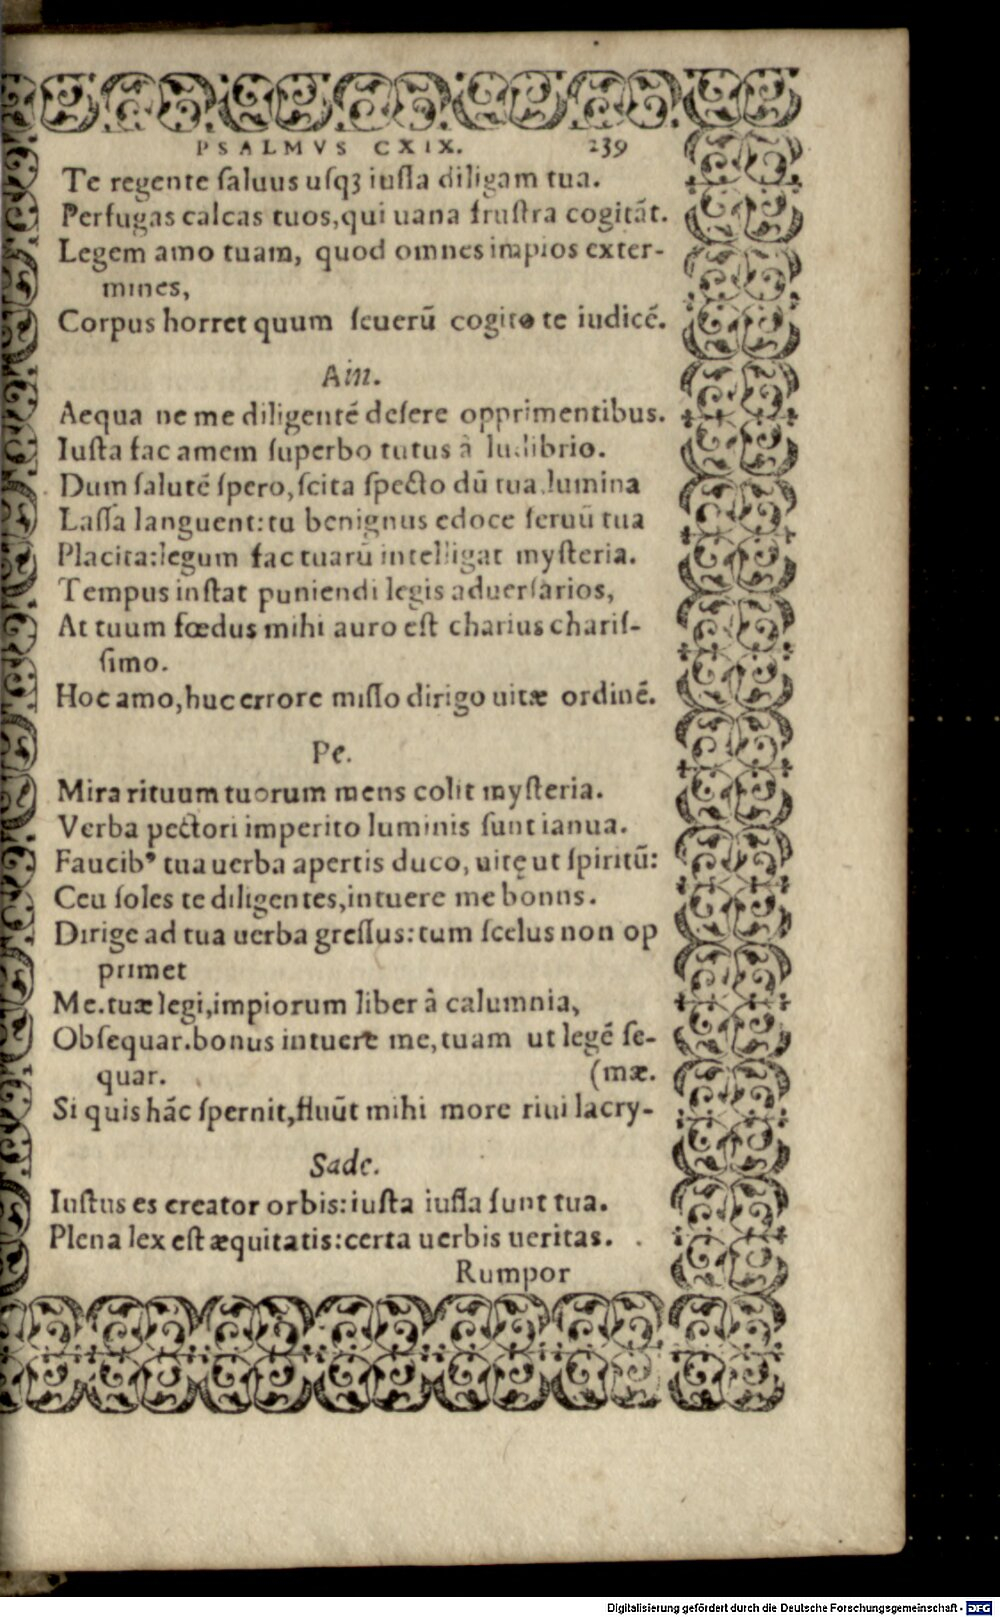 PSALMVS CXIX. 239
Te regente saluus usqꝫ iussa diligam tua.
Perfugas calcas tuos, qui uana frustra cogitāt.
Legem amo tuam, quod omnes impios exter-
mines,
Corpus horret quum seuerū cogito te iudicē.
Ain.
Aequa ne me diligentē desere opprimentibus.
Iusta fac amem superbo tutus à ludibrio.
Dum salutē spero, scita specto dū tua lumina
Lassa languent: tu benignus edoce seruū tua
Placita: legum fac tuarū intelligat mysteria.
Tempus instat puniendi legis aduersarios,
At tuum fœdus mihi auro est charius charis-
simo.
Hoc amo, huc errore misso dirigo uitæ ordinē.
Pe.
Mira rituum tuorum mens colit mysteria.
Verba pectori imperito luminis sunt ianua.
Faucibꝰ tua uerba apertis duco, uitę ut spiritū:
Ceu soles te diligentes, intuere me bonns.
Dirige ad tua uerba gressus: tum scelus non op
primet
Me. tuæ legi, impiorum liber à calumnia,
Obsequar. bonus intuere me, tuam ut legē se-
quar. (mæ.
Si quis hāc spernit, fluūt mihi more riui lacry-
Sade.
Iustus es creator orbis: iusta iussa sunt tua.
Plena lex est æquitatis: certa uerbis ueritas.
Rumpor
Digitalisierung gefördert durch die Deutsche Forschungsgemeinschaft - DFG